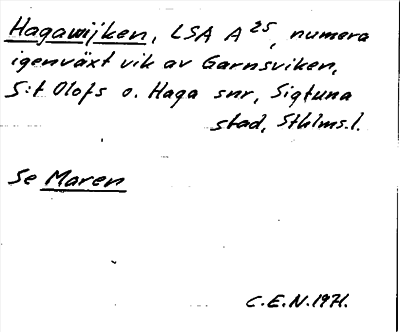 Hagawijken, LSA A 25, numera
igenväxt vik av Garnsviken,
S:t Olofs o. Haga snr, Sigtuna
stad, Sthlms.l.
Se Maren
C.E.N. 1971.